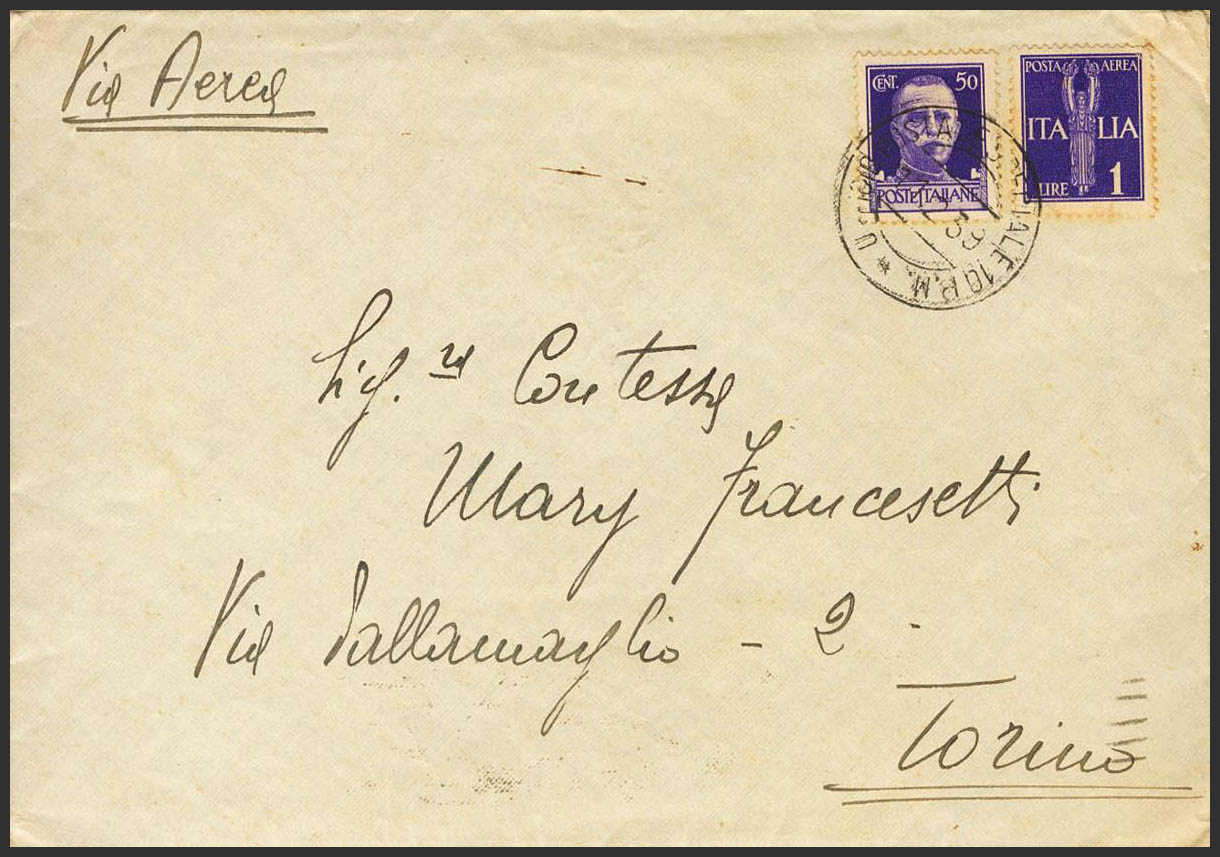 Via Aerea
CENT. 50
POSTE ITALIANE
POSTA AEREA
ITALIA
LIRE 1
UFFICIO POSTA SPECIALE 10 R.M.
39
Sig.ra Contessa
Mary Francesetti
Via Dallamaglio - 2 -
Torino